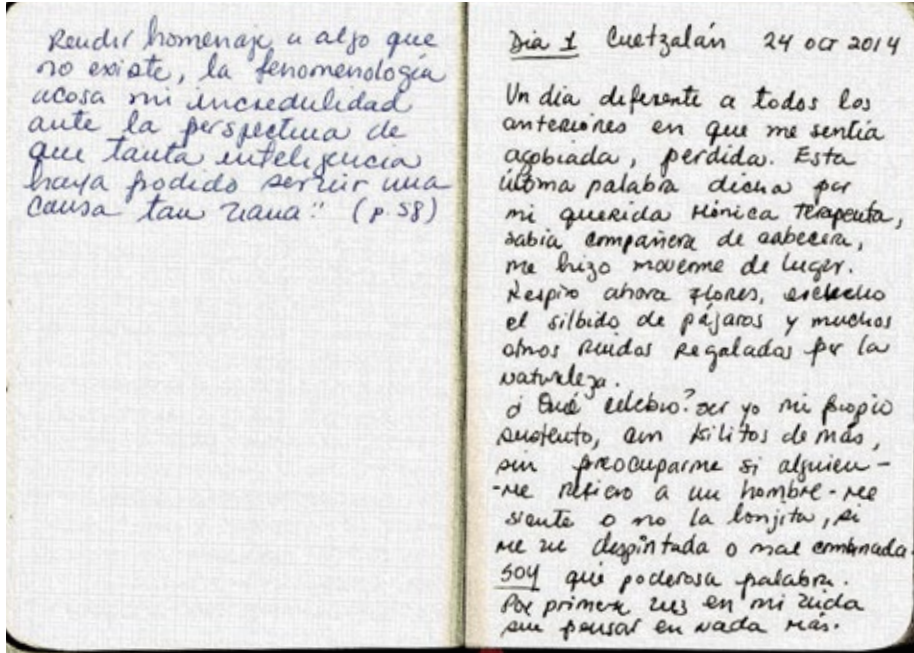 Rendir homenaje a algo que
no existe, la fenomenología
acosa mi incredulidad
ante la perspectiva de
que tanta inteligencia
haya podido servir una
causa tan vana." (p. 58)
Día 1 Cuetzalán 24 oct 2014
Un día diferente a todos los
anteriores en que me sentía
agobiada, perdida. Esta
última palabra dicha por
mi querida Mónica Terapeuta,
sabia compañera de cabecera,
me hizo moverme de lugar.
Respiro ahora flores, escucho
el silbido de pájaros y muchos
otros ruidos regalados por la
naturaleza.
¿Qué celebro? Ser yo mi propio
sustento, con kilitos de más,
sin preocuparme si alguien -
- me refiero a un hombre - me
siente o no la lonjita, si
me ve despintada o mal combinada.
SOY qué poderosa palabra.
Por primera vez en mi vida
sin pensar en nada más.